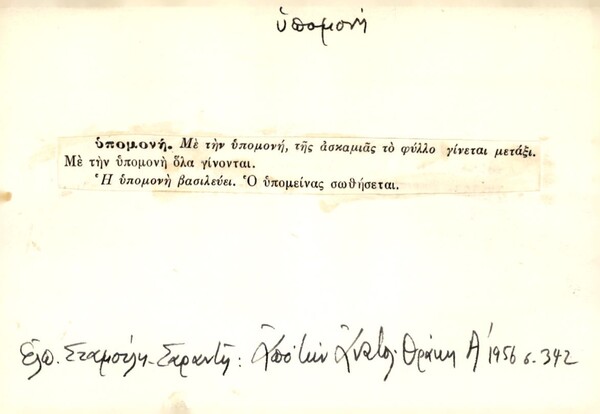 ὑπομονή
ὑπομονή. Μὲ τὴν ὑπομονή, τῆς ἀσκαμιᾶς τὸ φύλλο γίνεται μετάξι.
Μὲ τὴν ὑπομονὴ ὅλα γίνονται.
Ἡ ὑπομονὴ βασιλεύει. Ὁ ὑπομείνας σωθήσεται.
Ἐλπ. Σταμούλη-Σαραντῆ: Ἀπὸ τὴν Ἀνατολ. Θράκη Α' 1956 σ. 342